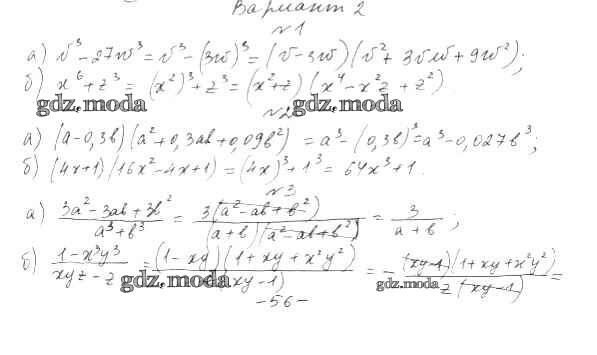 Вариант 2
№1
а) v³ - 27w³ = v³ - (3w)³ = (v - 3w)(v² + 3vw + 9w²);
б) x⁶ + z³ = (x²)³ + z³ = (x² + z)(x⁴ - x²z + z²)
gdz.moda gdz.moda
№2
а) (a - 0,3b)(a² + 0,3ab + 0,09b²) = a³ - (0,3b)³ = a³ - 0,027b³;
б) (4x+1)(16x² - 4x + 1) = (4x)³ + 1³ = 64x³ + 1.
№3
а) 3a² - 3ab + 3b² / a³ + b³ = 3(a² - ab + b²) / (a + b)(a² - ab + b²) = 3 / a + b;
б) 1 - x³y³ / xyz - z = (1 - xy)(1 + xy + x²y²) / (xy - 1) = - (xy - 1)(1 + xy + x²y²) / z(xy - 1) =
gdz.moda gdz.moda
-56-